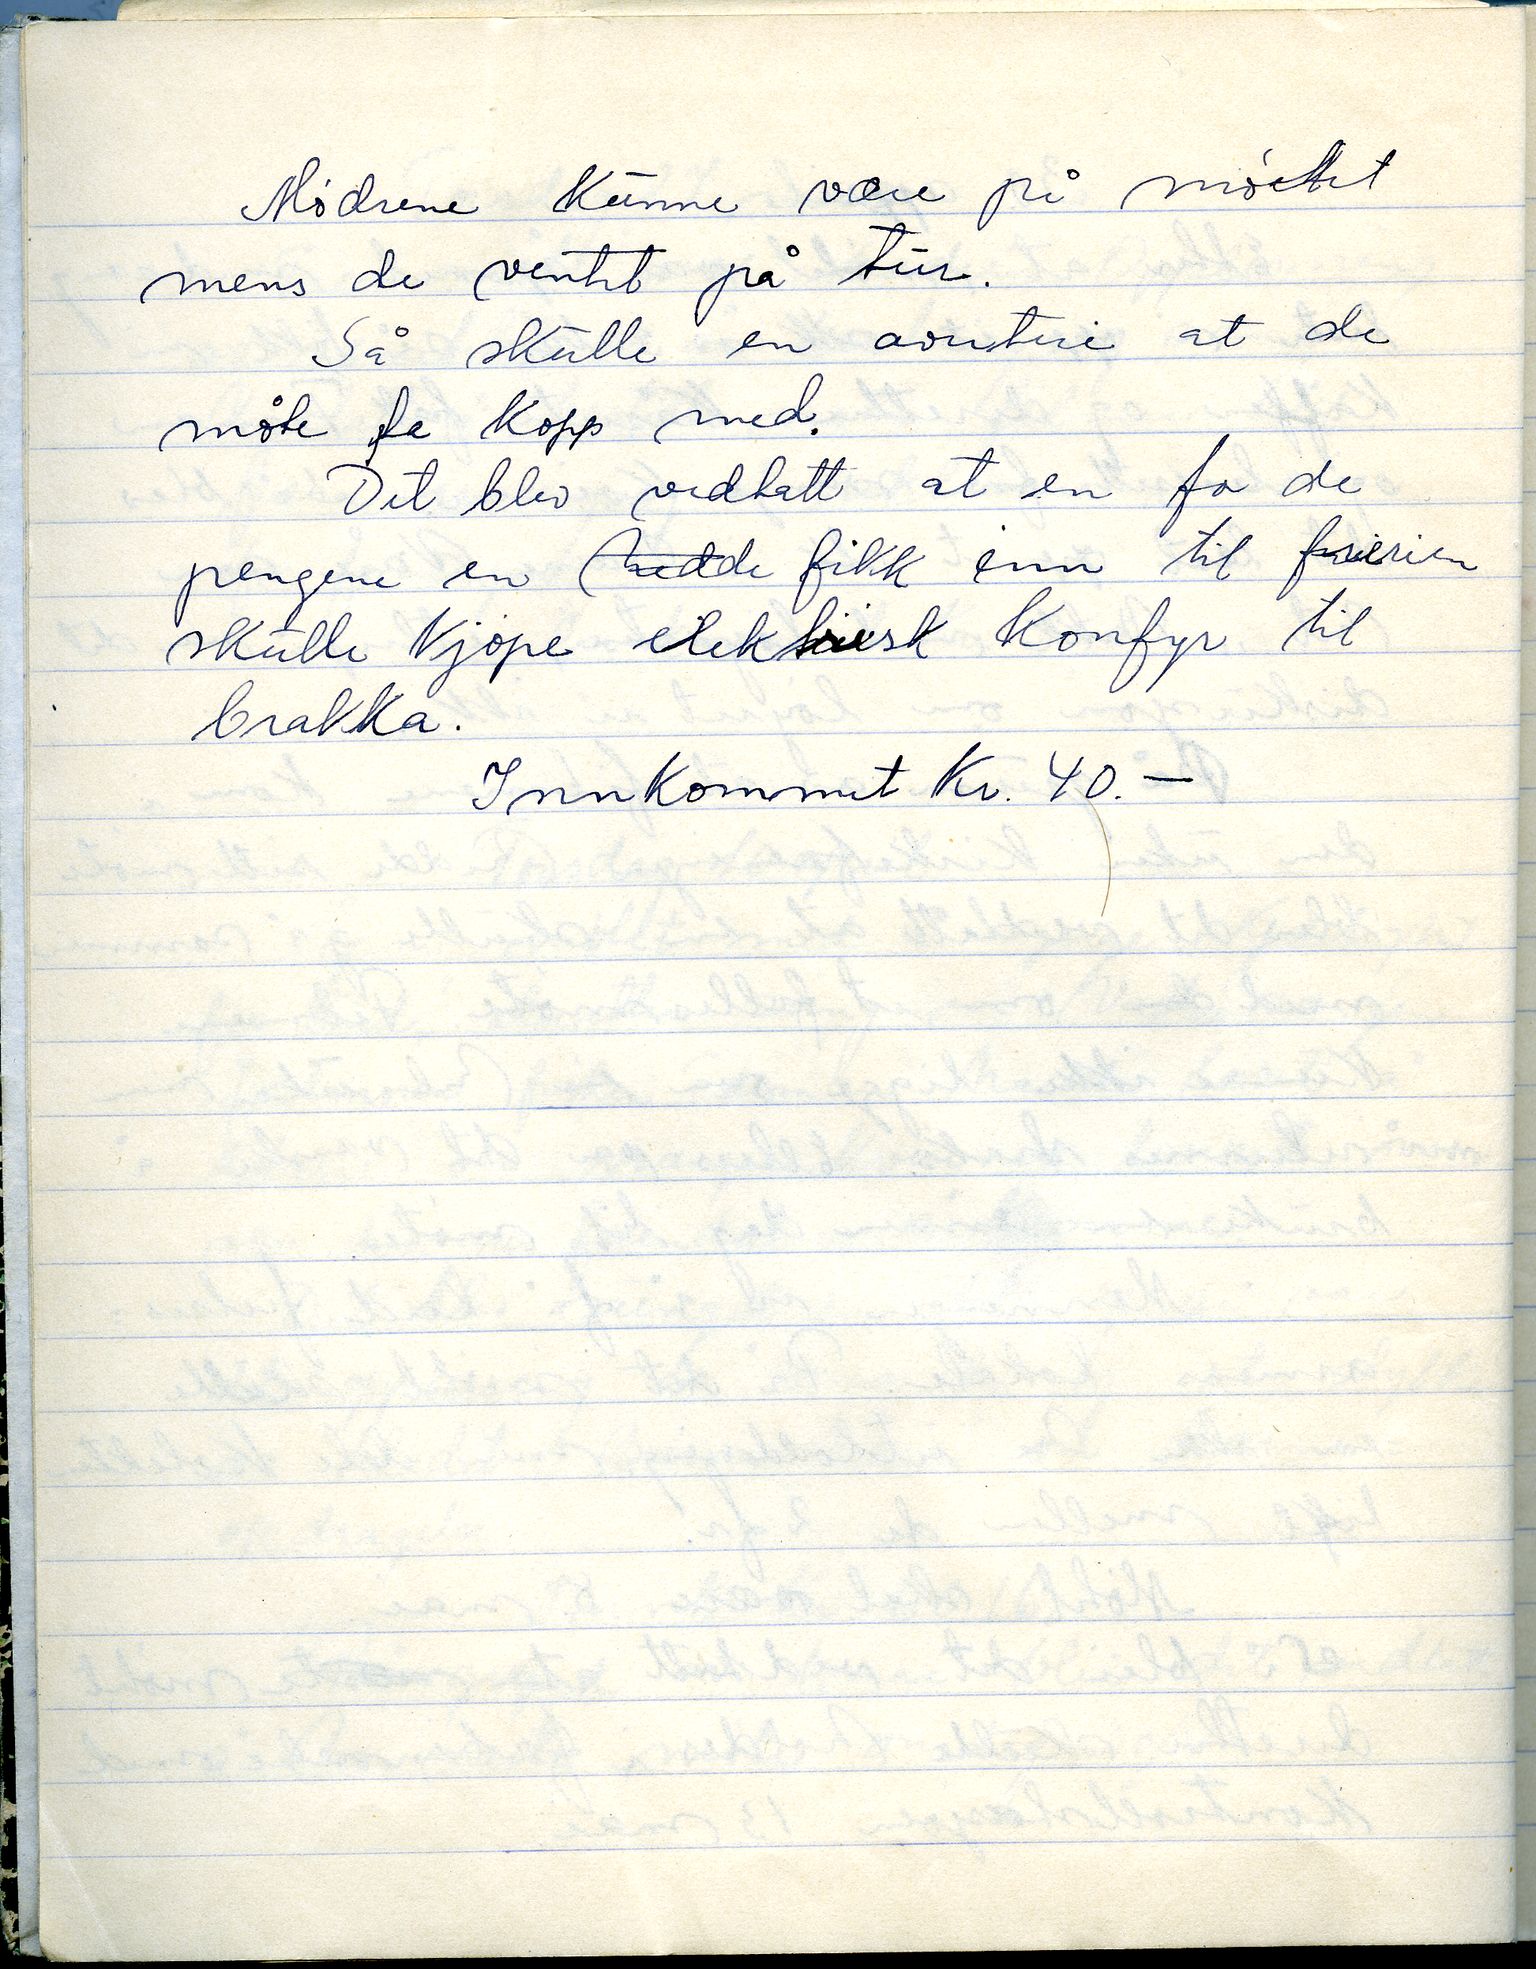 Mødrene kunne være på møtet
mens de ventet på tur.
Så skulle en avertere at de
måte ta kopp med.
Det blev vedtatt at en for de
pengene en hadde fikk inn til
skulle kjøpe elektrisk Konfyr til
brakka.
Innkommet Kr. 40.—